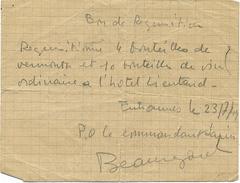 Bon de Requisition
Requisitionné 4 bouteilles de
vermouth et 10 bouteilles de vin
ordinaire a l'hotel Lieutaud.
Entraunes le 23/
P.O le commandant
Beauregard